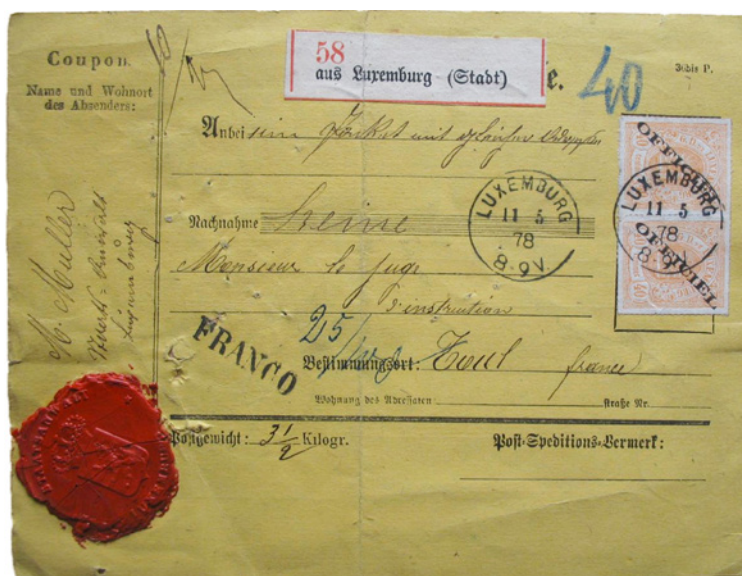 Coupon.
Name und Wohnort
des Absenders:
M. Müller
Luxemburg
58
aus Luxemburg (Stadt)
e.
40
30bis P.
Anbei ein Packet mit gleicher Adresse
OFFICIEL
OFFICIEL
LUXEMBURG
11 5
78
8-9V.
LUXEMBURG
11 5
78
8-9V.
Nachnahme keine
Monsieur le juge
d'instruction
25
FRANCO
Bestimmungsort: Toul france
Wohnung des Adressaten
Straße Nr.
Postgewicht: 3 1/2 Kilogr.
Post-Speditions-Vermerk: